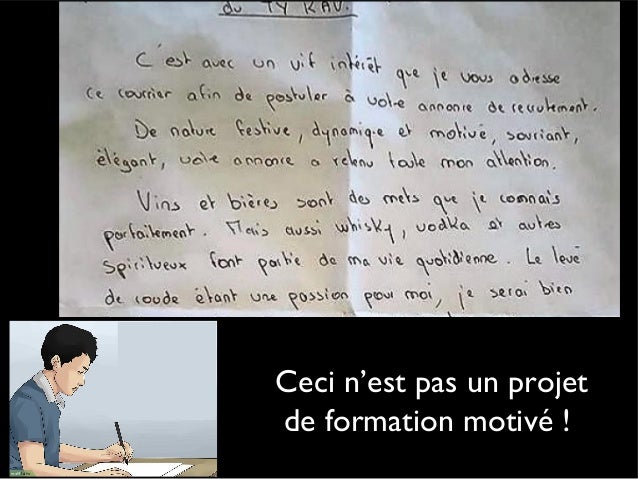 du TY KAV.
C'est avec un vif intérêt que je vous adresse
ce courrier afin de postuler à votre annonce de recrutement.
De nature festive, dynamique et motivé, souriant,
élégant, votre annonce a retenu toute mon attention.
Vins et bières sont des mets que je connais
parfaitement. Mais aussi whisky, vodka et autres
spiritueux font partie de ma vie quotidienne. Le levé
de coude étant une passion pour moi, je serai bien
Ceci n'est pas un projet
de formation motivé !